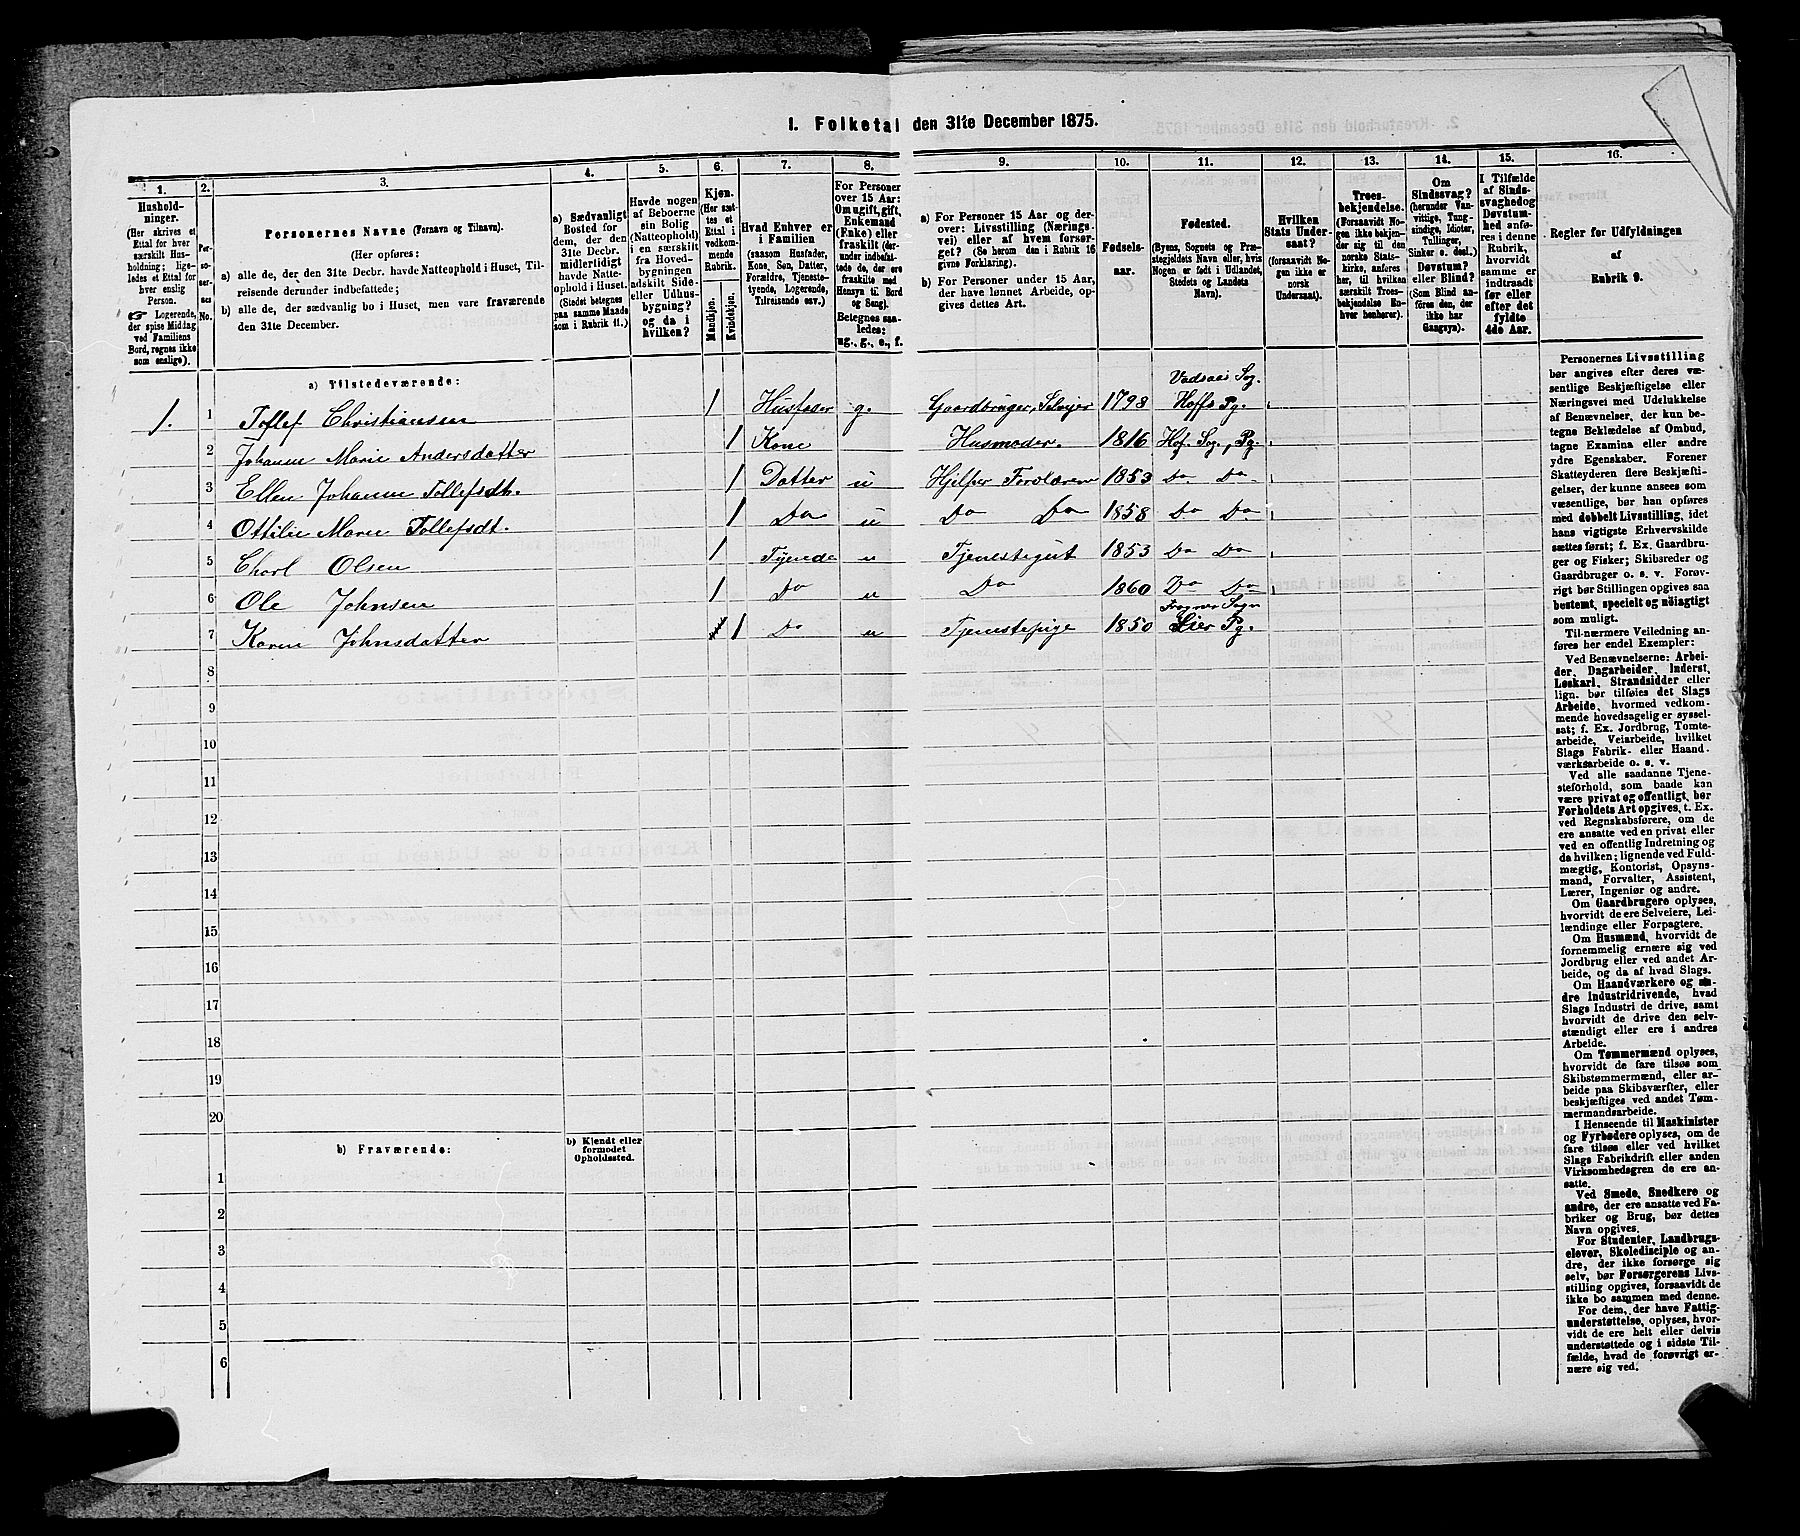 1. Folketal den 31te December 1875.
1. 2. 3. 4. 5. 6. 7. 8. 9. 10. 11. 12. 13. 14. 15. 16.
Hushold-
ninger.
(Her skrives et
Ettal for hver
særskilt Hus-
holdning; lige-
ledes et Ettal for
hver enslig
Person.
☞ Logerende,
der spise Middag
ved Familiens
Bord, regnes ikke
som enslige).
Per-
so-
ner-
nes
No.
Personernes Navne (Fornavn og Tilnavn).
(Her opføres:
a) alle de, der den 31te Decbr. havde Natteophold i Huset, Til-
reisende derunder indbefattede;
b) alle de, der sædvanlig bo i Huset, men vare fraværende
den 31te December.
a) Sædvanligt
Bosted for
dem, der den
31te Decbr.
midlertidigt
havde Natte-
ophold i Huset.
(Stedet betegnes
paa samme Maade
som i Rubrik 11.)
Havde nogen
af Beboerne
sin Bolig
(Natteophold)
i en særskilt
fra Hoved-
bygningen
adskilt Side-
eller Udhus-
bygning?
og da i
hvilken?
Kjøn.
(Her sæt-
tes et
Ettal i
vedkom-
mende
Rubrik.
Mandkjøn.
Kvindekjøn.
Hvad Enhver er
i Familien
(saasom Husfader,
Kone, Søn, Datter,
Forældre, Tjeneste-
tyende, Logerende,
Tilreisende osv.)
For Personer
over 15 Aar:
Om ugift, gift,
Enkemand
(Enke) eller
fraskilt (der-
under indbefat-
tede de, der ere
fraskilte med
Hensyn til Bord
og Seng).
Betegnes saa-
ledes:
ug., g., e., f.
a) For Personer 15 Aar og der-
over: Livsstilling (Nærings-
vei) eller af hvem forsør-
get? (Se herom den i Rubrik 16
givne Forklaring).
b) For Personer under 15 Aar,
der have lønnet Arbeide, op-
gives dettes Art.
Fødsels-
aar.
Fødested.
(Byens, Sognets og Præ-
stegjeldets Navn eller, hvis
Nogen er født i Udlandet,
Stedets og Landets
Navn).
Hvilken
Stats Under-
saat?
(forsaavidt No-
gen ikke er
norsk
Undersaat).
Troes-
bekjendelse.
(Forsaavidt No-
gen ikke bekjen-
der sig til den
norske Stats-
kirke, anføres
her, til hvilken
særskilt Troes-
bekjendelse En-
hver henhører).
Om
Sindssvag?
(herunder Van-
vittige, Tung-
sindige, Idioter,
Tullinger,
Sinker o. desl.)
Døvstum?
eller Blind?
(Som Blind an-
føres den, der
ikke har
Gangsyn).
I Tilfælde
af Sinds-
svaghed og
Døvstum-
hed anfø-
res i denne
Rubrik,
hvorvidt
samme er
indtraadt
før eller
efter det
fyldte
4de Aar.
Regler for Udfyldningen
af
Rubrik 9.
a) Tilstedeværende:
1. 1 Tollef Christiansen 1 Husfader g. Gaardbruger, Selvejer 1798 Sog. Hoffs Pg.
2 Johanne Marie Andersdatter 1 Kone Husmoder. 1816 Hof. Sog., Pg.
3 Ellen Johanne Tollefsdt. 1 Datter u Hjelper Forældrene 1853 Do Do
4 Ottilie Marie Tollefsdt. 1 Do u Do Do 1858 Do Do
5 Charl Olsen 1 Tyende u Tjenestegut 1853 Do Do
6 Ole Johnsen 1 Do u Do 1860 Do Do
7 Karen Johnsdatter 1 Do u Tjenestepige 1850 Sogn Lier Pg.
8
9
10
11
12
13
14
15
16
17
18
19
20
b) Fraværende:
b) Kjendt eller
formodet
Opholdssted.
1
2
3
4
5
6
Personernes Livsstilling
bør angives efter deres væ-
sentlige Beskjæftigelse eller
Næringsvei med Udelukkelse
af Benævnelser, der kun be-
tegne Beklædelse af Ombud,
tagne Examina eller andre
ydre Egenskaber. Forener
Skatteyderen flere Beskjæfti-
gelser, der kunne ansees som
væsentlige, bør han opføres
med dobbelt Livsstilling, idet
hans vigtigste Erhvervskilde
sættes først; f. Ex. Gaardbru-
ger og Fisker; Skibsreder og
Gaardbruger o. s. v. Forøv-
rigt bør Stillingen opgives saa
bestemt, specielt og nøiagtigt
som muligt.
Til nærmere Veiledning an-
føres her endel Exempler:
Ved Benævnelserne: Arbei-
der, Dagarbeider, Inderst,
Løskarl, Strandsidder eller
lign. bør tilføies det Slags
Arbeide, hvormed vedkom-
mende hovedsagelig er syssel-
sat; f. Ex. Jordbrug, Tomte-
arbeide, Veiarbeide, hvilket
Slags Fabrik- eller Haand-
værksarbeide o. s. v.
Ved alle saadanne Tjene-
steforhold, som baade kan
være privat og offentligt, bør
Forholdets Art opgives, t. Ex.
ved Regnskabsførere, om de
ere ansatte ved en privat eller
ved en offentlig Indretning og
da hvilken; lignende ved Fuld-
mægtig, Kontorist, Opsyns-
mand, Forvalter, Assistent,
Lærer, Ingeniør og andre.
Om Gaardbrugere oplyses,
hvorvidt de ere Selveiere, Lei-
lændinge eller Forpagtere.
Om Husmænd, hvorvidt de
fornemmelig ernære sig ved
Jordbrug eller ved andet Ar-
beide, og da af hvad Slags.
Om Haandværkere og an-
dre Industridrivende, hvad
Slags Industri de drive, samt
hvorvidt de drive den selv-
stændigt eller ere i andres
Arbeide.
Om Tømmermænd oplyses,
hvorvidt de fare tilsøs som
Skibstømmermænd, eller ar-
beide paa Skibsværfter, eller
beskjæftiges ved andet Tøm-
mermandsarbeide.
I Henseende til Maskinister
og Fyrbødere oplyses, om de
fare tilsøs eller ved hvilket
Slags Fabrikdrift eller anden
Virksomhedsgren de ere an-
satte.
Ved Smede, Snedkere og
andre, der ere ansatte ved Fa-
briker og Brug, bør dettes
Navn opgives.
For Studenter, Landbrugs-
elever, Skoledisciple og an-
dre, der ikke forsørge sig
selv, bør Forsørgerens Livs-
stilling opgives, forsaavidt de
ikke bo sammen med denne.
For dem, der have Fattig-
understøttelse, oplyses, hvor-
vidt de ere helt eller delvis
understøttede og i sidste Til-
fælde, hvad de forøvrigt er-
nære sig ved.